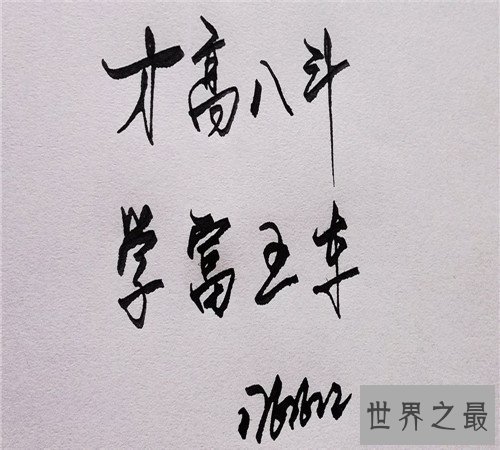 才高八斗
学富五车
世界之最